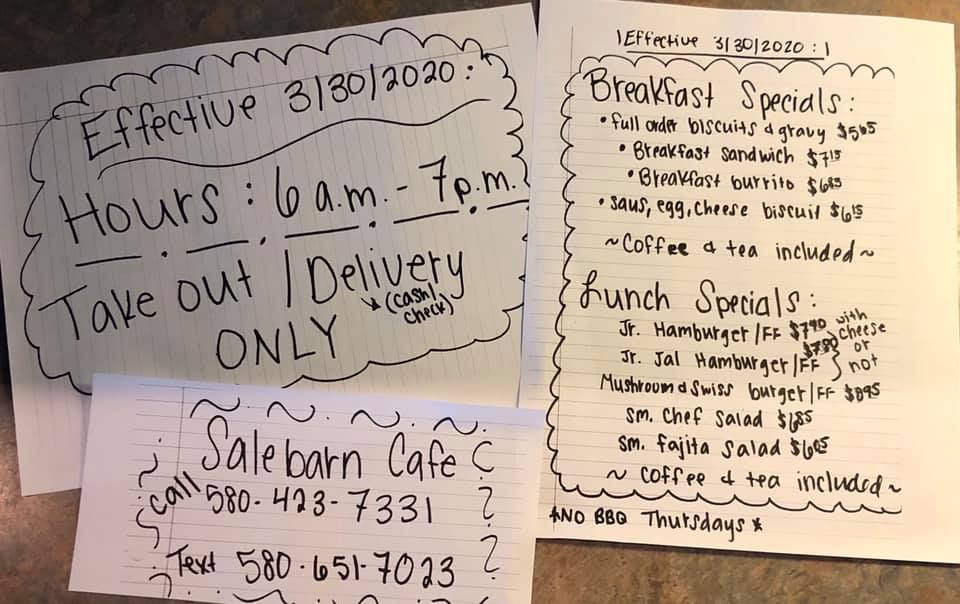 Effective 3/30/2020:
Hours: 6 a.m. - 7 p.m.
Take out / Delivery
(cash/
check)
ONLY
Salebarn Cafe
Call 580-423-7331
Text 580-651-7023
Effective 3/30/2020:
Breakfast Specials:
• full order biscuits & gravy $5.65
• Breakfast sandwich $7.15
• Breakfast burrito
• saus, egg, cheese biscuit $6.15
~ Coffee & tea included ~
Lunch Specials:
Jr. Hamburger/FF $7.90
Jr. Jal Hamburger/FF $7.90
with
cheese
or
not
Mushroom & Swiss burger/FF $8.95
Sm. Chef Salad
Sm. Fajita Salad
~ coffee & tea included ~
*NO BBQ Thursdays*